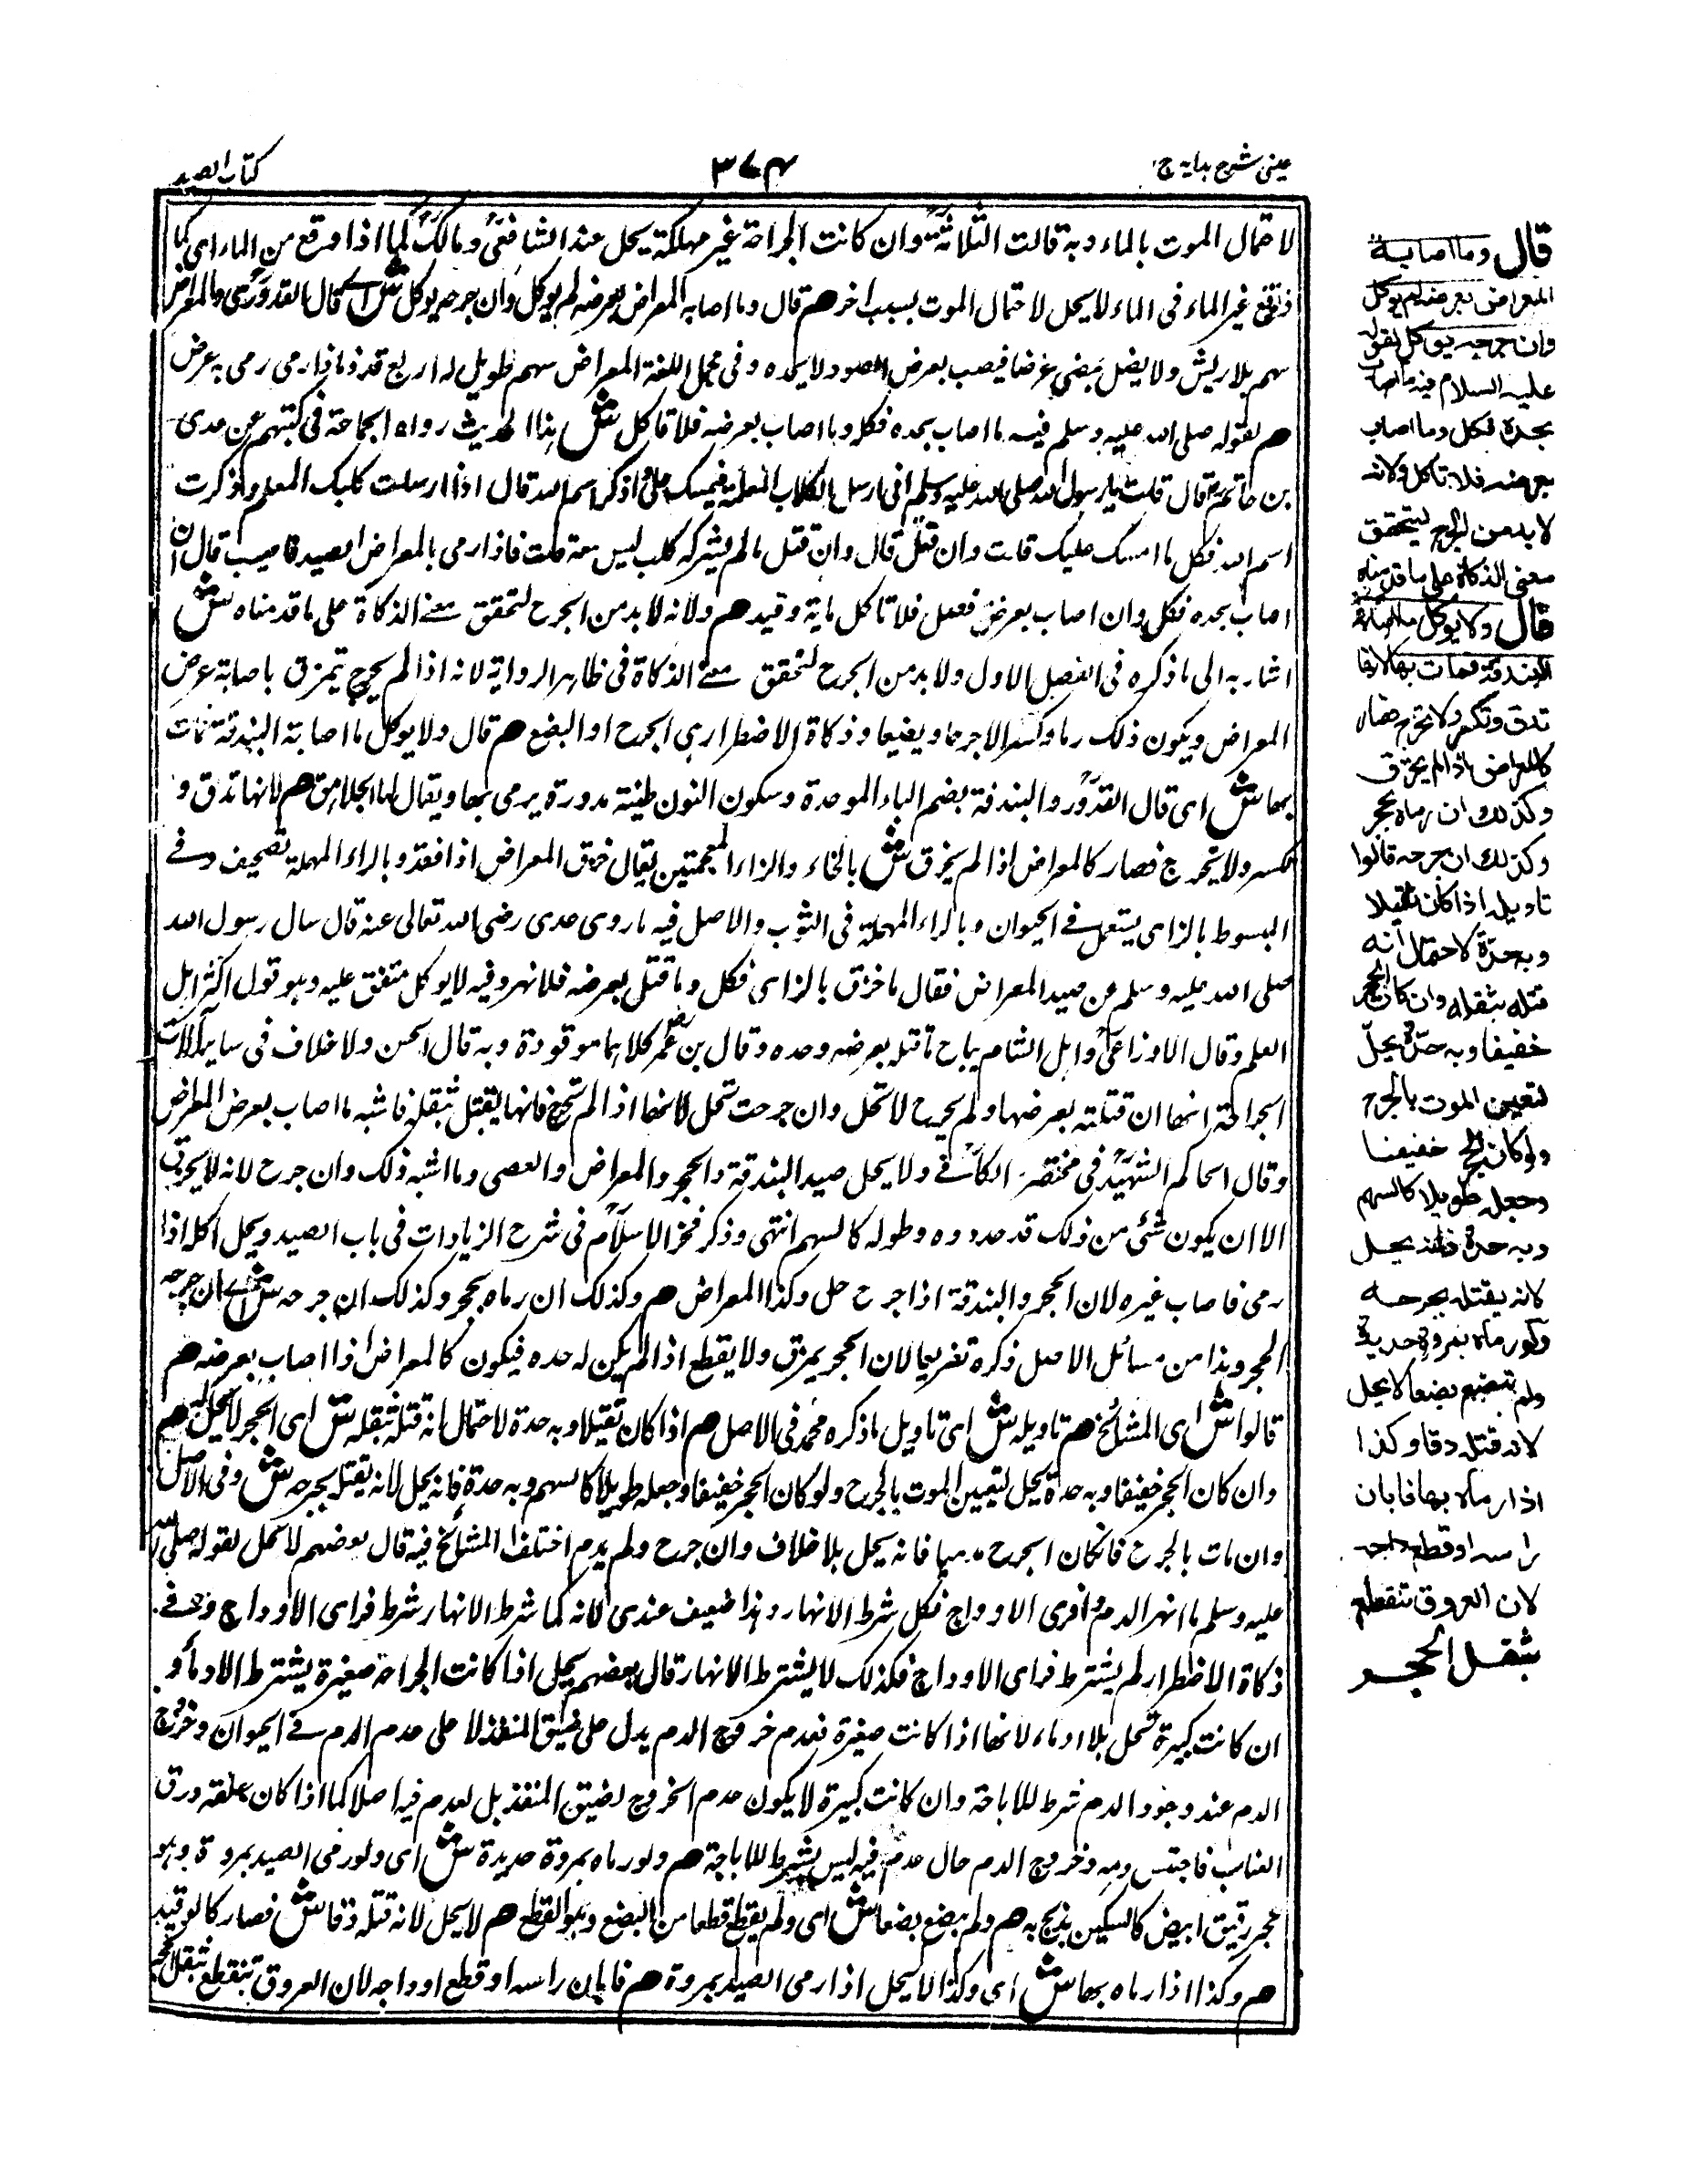 عینی شرح ہدایہ ج
۳۷۴
کتاب الصید
لاحتمال الموت بالماء وبه قالت الثلاثة وان كانت الجراحة غير مهلكة يحل عند الشافعي ومالك كما اذا وقع من الماء اى كما
اذا وقع غير الماء فى الماء لا يحل لاحتمال الموت بسبب اخر هم قال وما اصابه المعراض بعرضه لم يوكل وان جرحه يوكل ش اى قال القدورى والمعراض
سهم بلا ريش ولا نصل يمضي عرضا فيصب بعرض العود لا بحده وفى مجمل اللغة المعراض سهم طويل له اربع قذذ فاذا رمى به عرض
هم لقوله صلى الله عليه وسلم فيه ما اصاب بحده فكل وما اصاب بعرضه فلا تاكل ش هذا الحديث رواه الجماعة فى كتبهم عن عدى
بن حاتم قال قلت يا رسول الله صلى الله عليه وسلم انى ارسل الكلاب المعلمة فيمسكن على واذكر اسم الله قال اذا ارسلت كلبك المعلم وذكرت
اسم الله فكل ما امسك عليك قلت وان قتل قال وان قتل مالم يشركه كلب ليس معه قلت فاذا رمى بالمعراض الصيد فاصيب قال ان
اصاب بحده فكل وان اصاب بعرض فقتل فلا تاكل فانه وقيذ هم ولانه لا بد من الجرح لتحقق معنى الذكاة على ما قدمناه ش
اشار به الى ما ذكره فى الفصل الاول ولا بد من الجرح لتحقق معنى الذكاة فى ظاهر الرواية لانه اذا لم يجرح تمزق باصابة عرض
المعراض ويكون ذلك رضا وكسرا لا جرحا وبضعا وذكاة الاضطرارى الجرح او البضع هم قال ولا يوكل ما اصابة البندقة فمات
بها ش اى قال القدورى والبندقة بضم الباء الموحدة وسكون النون طينة مدورة يرمى بها ويقال لها الجلاهق هم لانها تدق و
تكسر ولا تجرح فصار كالمعراض اذا لم يخزق ش بالخاء والزاء المعجمتين يقال خزق المعراض اذا نفذ وبالراء المهملة تصحيف وفى
المبسوط بالزاى يستعمل فى الحيوان وبالراء المهملة فى الثوب والاصل فيه ما روى عدى رضى الله تعالى عنه قال سال رسول الله
صلى الله عليه وسلم عن صيد المعراض فقال ما خزق بالزاى فكل وما قتل بعرضه فلا نهر وفيه لا يوكل متفق عليه وهو قول اكثر اهل
العلم وقال الاوزاعى واهل الشام يباح ما قتله بعرضه وحده وقال بن عمر كلاهما موقوذة وبه قال الحسن ولا خلاف فى ساير آلات
الجراحة انها ان قتلته بعرضها ولم يجرح لا تحل وان جرحت تحل لانها اذا لم تجرح فانها يقتل بثقله فاشبه ما اصاب بعرض المعراض
وقال الحاكم الشهيد فى مختصر الكافى ولا يحل صيد البندقة والحجر والمعراض والعصى وما اشبه ذلك وان جرح لانه لا يخزق
الا ان يكون شئى من ذلك قد حدده وطوله كالسهم انتهى وذكر فخر الاسلام فى شرح الزيادات فى باب الصيد ويحل اكله اذا
رمى فاصاب غيره لان الحجر والبندقة اذا جرح حل وكذا المعراض هم وكذلك ان رماه بحجر وكذلك ان جرحه ش اى ان جرحه
الحجر وهذا من مسائل الاصل ذكره تفريعا لان الحجر يمزق ولا يقطع اذا لم يكن له حده فيكون كالمعراض اذا اصاب بعرضه هم
قالوا ش اى المشائخ هم تاويله ش اى تاويل ما ذكره محمد فى الاصل هم اذا كان ثقيلا وبه حدة لاحتمال انه قتله بثقله ش اى الحجر لا يحل هم
وان كان الحجر خفيفا وبه حدة يحل لتعيين الموت بالجرح ولو كان الحجر خفيفا وجعله طويلا كالسهم وبه حدة فانه يحل لانه يقتله بجرحه ش وفى الاصل
وان مات بالجرح فان كان الجرح مدميا فانه يحل بلا خلاف وان جرح ولم يدم اختلف المشائخ فيه قال بعضهم لا تحل لقوله صلى الله
عليه وسلم ما انهر الدم وافرى الاوداج فكل شرط الانهار وهذا ضعيف عندى لانه كما شرط الانهار شرط فراى الاوداج وفى
ذكاة الاضطرار لم يشترط فراى الاوداج فكذلك لا يشترط الانهار قال بعضهم يحل اذا كانت الجراحة صغيرة يشترط الادماء و
ان كانت كبيرة تحل بلا ادماء لانها اذا كانت صغيرة فعدم خروج الدم يدل على ضيق المنفذ لا على عدم الدم فى الحيوان وخروج
الدم عند وجود الدم شرط للاباحة وان كانت كبيرة لا يكون عدم الخروج لضيق المنفذ بل لعدم فيه اصلا كما اذا كان علفه ورق
العناب فاحتبس دمه وخروج الدم حال عدم فيه ليس بشرط للاباحة هم ولو رماه بمروة حديدة ش اى ولو رمى الصيد بمروة وهو
حجر رقيق ابيض كالسكين يذبح به هم ولم يبضع بضعا ش اى ولم يقطع قطعا من البضع وهو القطع هم لا يحل لانه قتله دقا ش فصار كالوقيذ
هم وكذا اذا رماه بها ش اى وكذا لا يحل اذا رمى الصيد بمروة هم فابان راسه او قطع اوداجه لان العروق تنقطع بثقل الحجر
قال وما اصابه
المعراض بعرضه لم يوكل
وان جرحه يوكل لقوله
عليه السلام فيه ما اصاب
بحدة فكل وما اصاب
بعرضه فلا تاكل ولانه
لا بد من الجرح ليتحقق
معنى الذكاة على ما قدمناه
قال ولا يوكل ما اصابه
البندقة فمات بها لانها
تدق وتكسر ولا تجرح فصار
كالمعراض اذا لم يخزق
وكذلك ان رماه بحجر
وكذلك ان جرحه قالوا
تاويله اذا كان ثقيلا
وبه حدة لاحتمال انه
قتله بثقله وان كان الحجر
خفيفا وبه حدة يحل
لتعيين الموت بالجرح
ولو كان الحجر خفيفا
وجعله طويلا كالسهم
وبه حدة فانه يحل
لانه يقتله بجرحه
ولو رماه بمروة حديدة
ولم تبضع بضعا لا يحل
لانه قتله دقا وكذا
اذا رماه بها فابان
راسه او قطع اوداجه
لان العروق تنقطع
بثقل الحجر